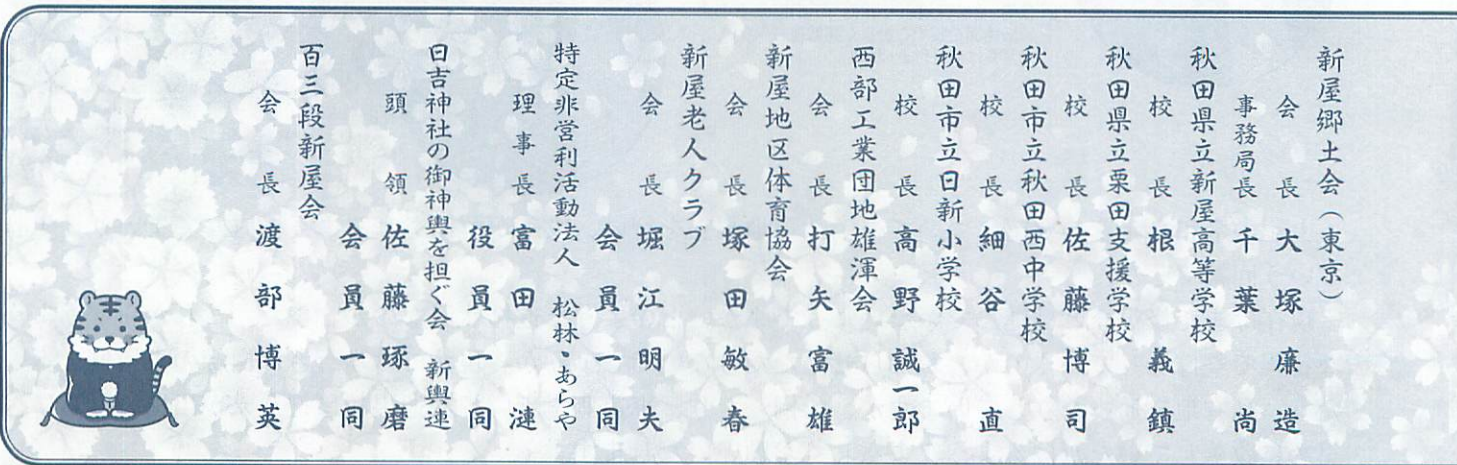 新屋郷土会（東京）
会長 大塚廉造
事務局長 千葉尚
秋田県立新屋高等学校
校長 根義鎮
秋田県立栗田支援学校
校長 佐藤博司
秋田市立秋田西中学校
校長 細谷直
秋田市立日新小学校
校長 高野誠一郎
西部工業団地雄渾会
会長 打矢富雄
新屋地区体育協会
会長 塚田敏春
新屋老人クラブ
会長 堀江明夫
会員一同
特定非営利活動法人 松林・あらや
理事長 富田漣
役員一同
日吉神社の御神輿を担ぐ会 新輿連
頭領 佐藤琢磨
会員一同
百三段新屋会
会長 渡部博英